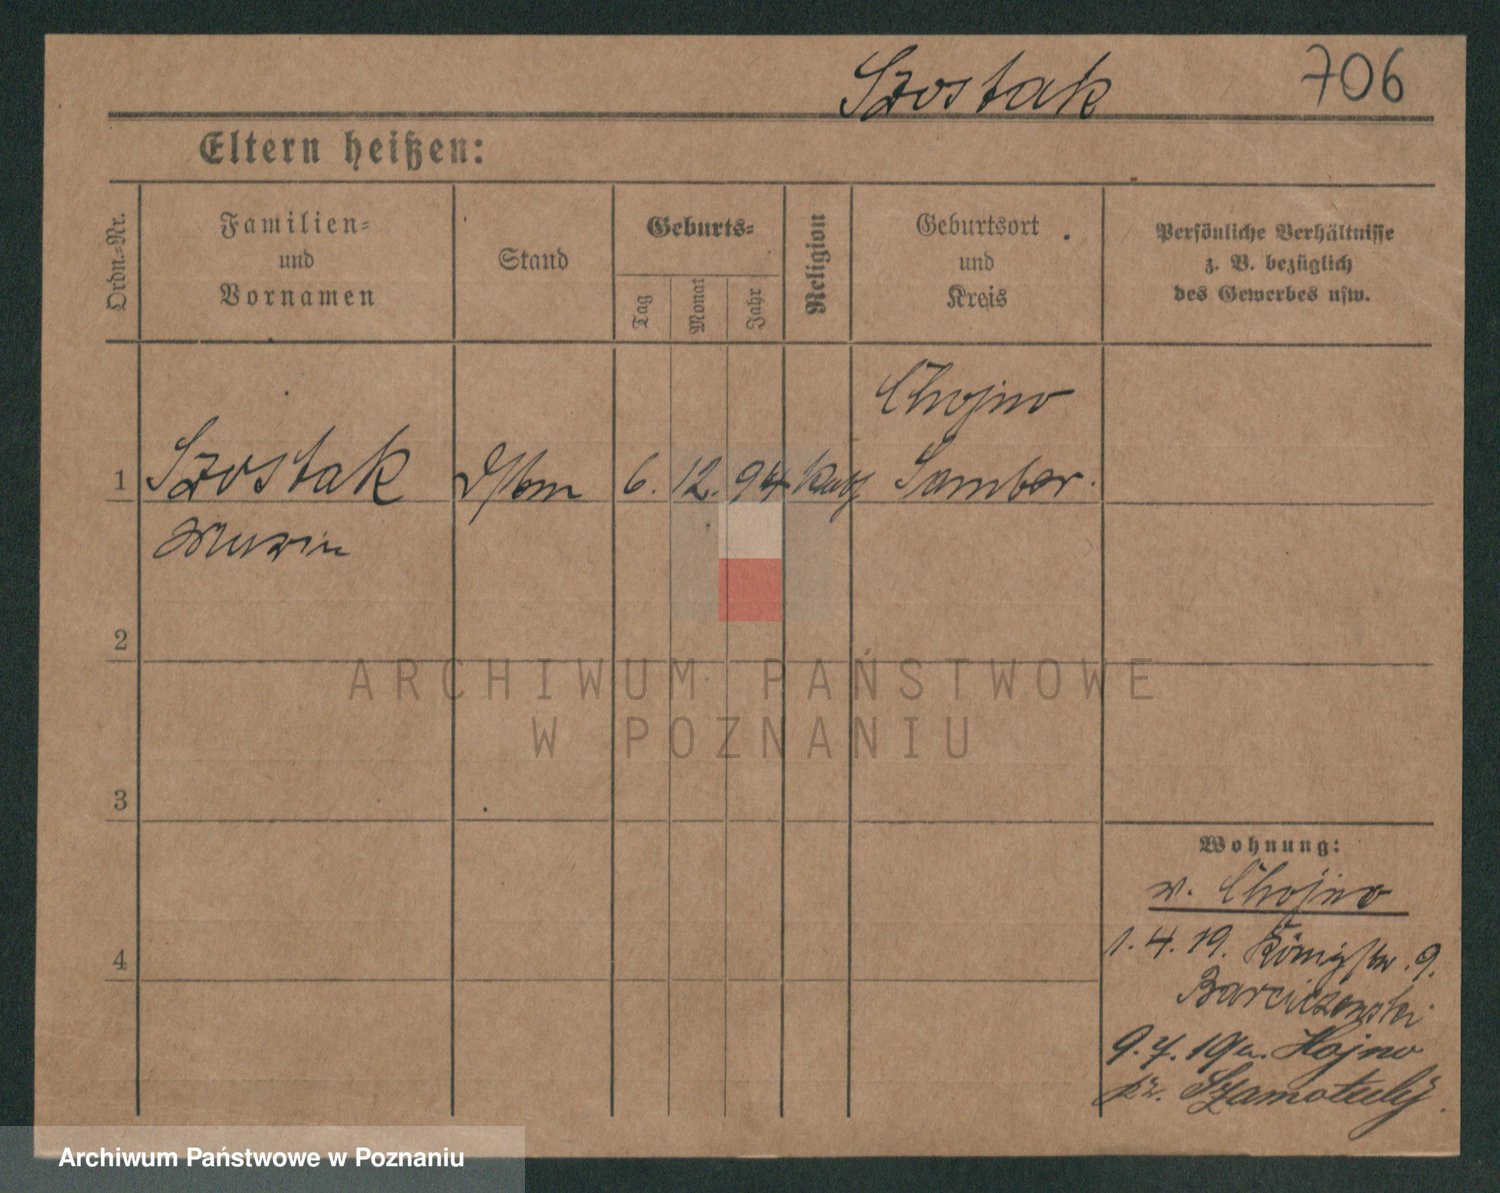 Szostak 706
Eltern heißen:
Ordn.-Nr.
Familien=
und
Vornamen
Stand
Geburts=
Tag
Monat
Jahr
Religion
Geburtsort
und
Kreis
Persönliche Verhältnisse
z. B. bezüglich
des Gewerbes usw.
Chojno
1 Szostak 6. 12. 94 kath Samter.
2
3
4
Wohnung:
v. Chojno
1. 4. 19. Königstr. 9.
Barciszewski
9. 7. 19 Hojno
Szamotuły.
ARCHIWUM PAŃSTWOWE
W POZNANIU
Archiwum Państwowe w Poznaniu